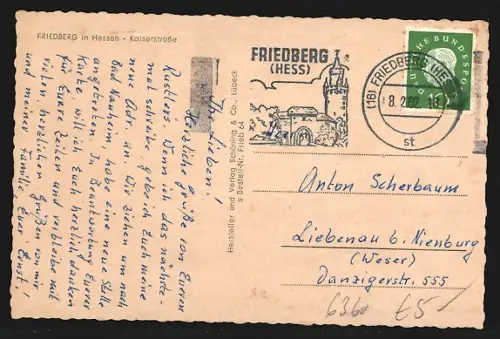 FRIEDBERG in Hessen - Kaiserstraße
Ihr Lieben!
Herzliche Grüße von Euren
Rüstlers. Wenn ich das nächste-
mal schreibe, gebe ich Euch meine
neue Adr. an. Wir ziehen um nach
Bad Nauheim, habe eine neue Stelle
angetreten. In Beantwortung Eurer
Karte will ich Euch herzlich danken
für Eure Zeilen und verbleibe mit
vielen, herzlichen Grüßen von mir
und meiner Familie, Euer Ernst!
Hersteller und Verlag Schöning & Co., Lübeck
s Bestell-Nr. Frieb 64
FRIEDBERG
(HESS)
(16) FRIEDBERG (HESS)
8.2.62
st
DEUTSCHE BUNDESPOST
Anton Scherbaum
Liebenau b. Nienburg
(Weser)
Danzigerstr. 555
6360
£5